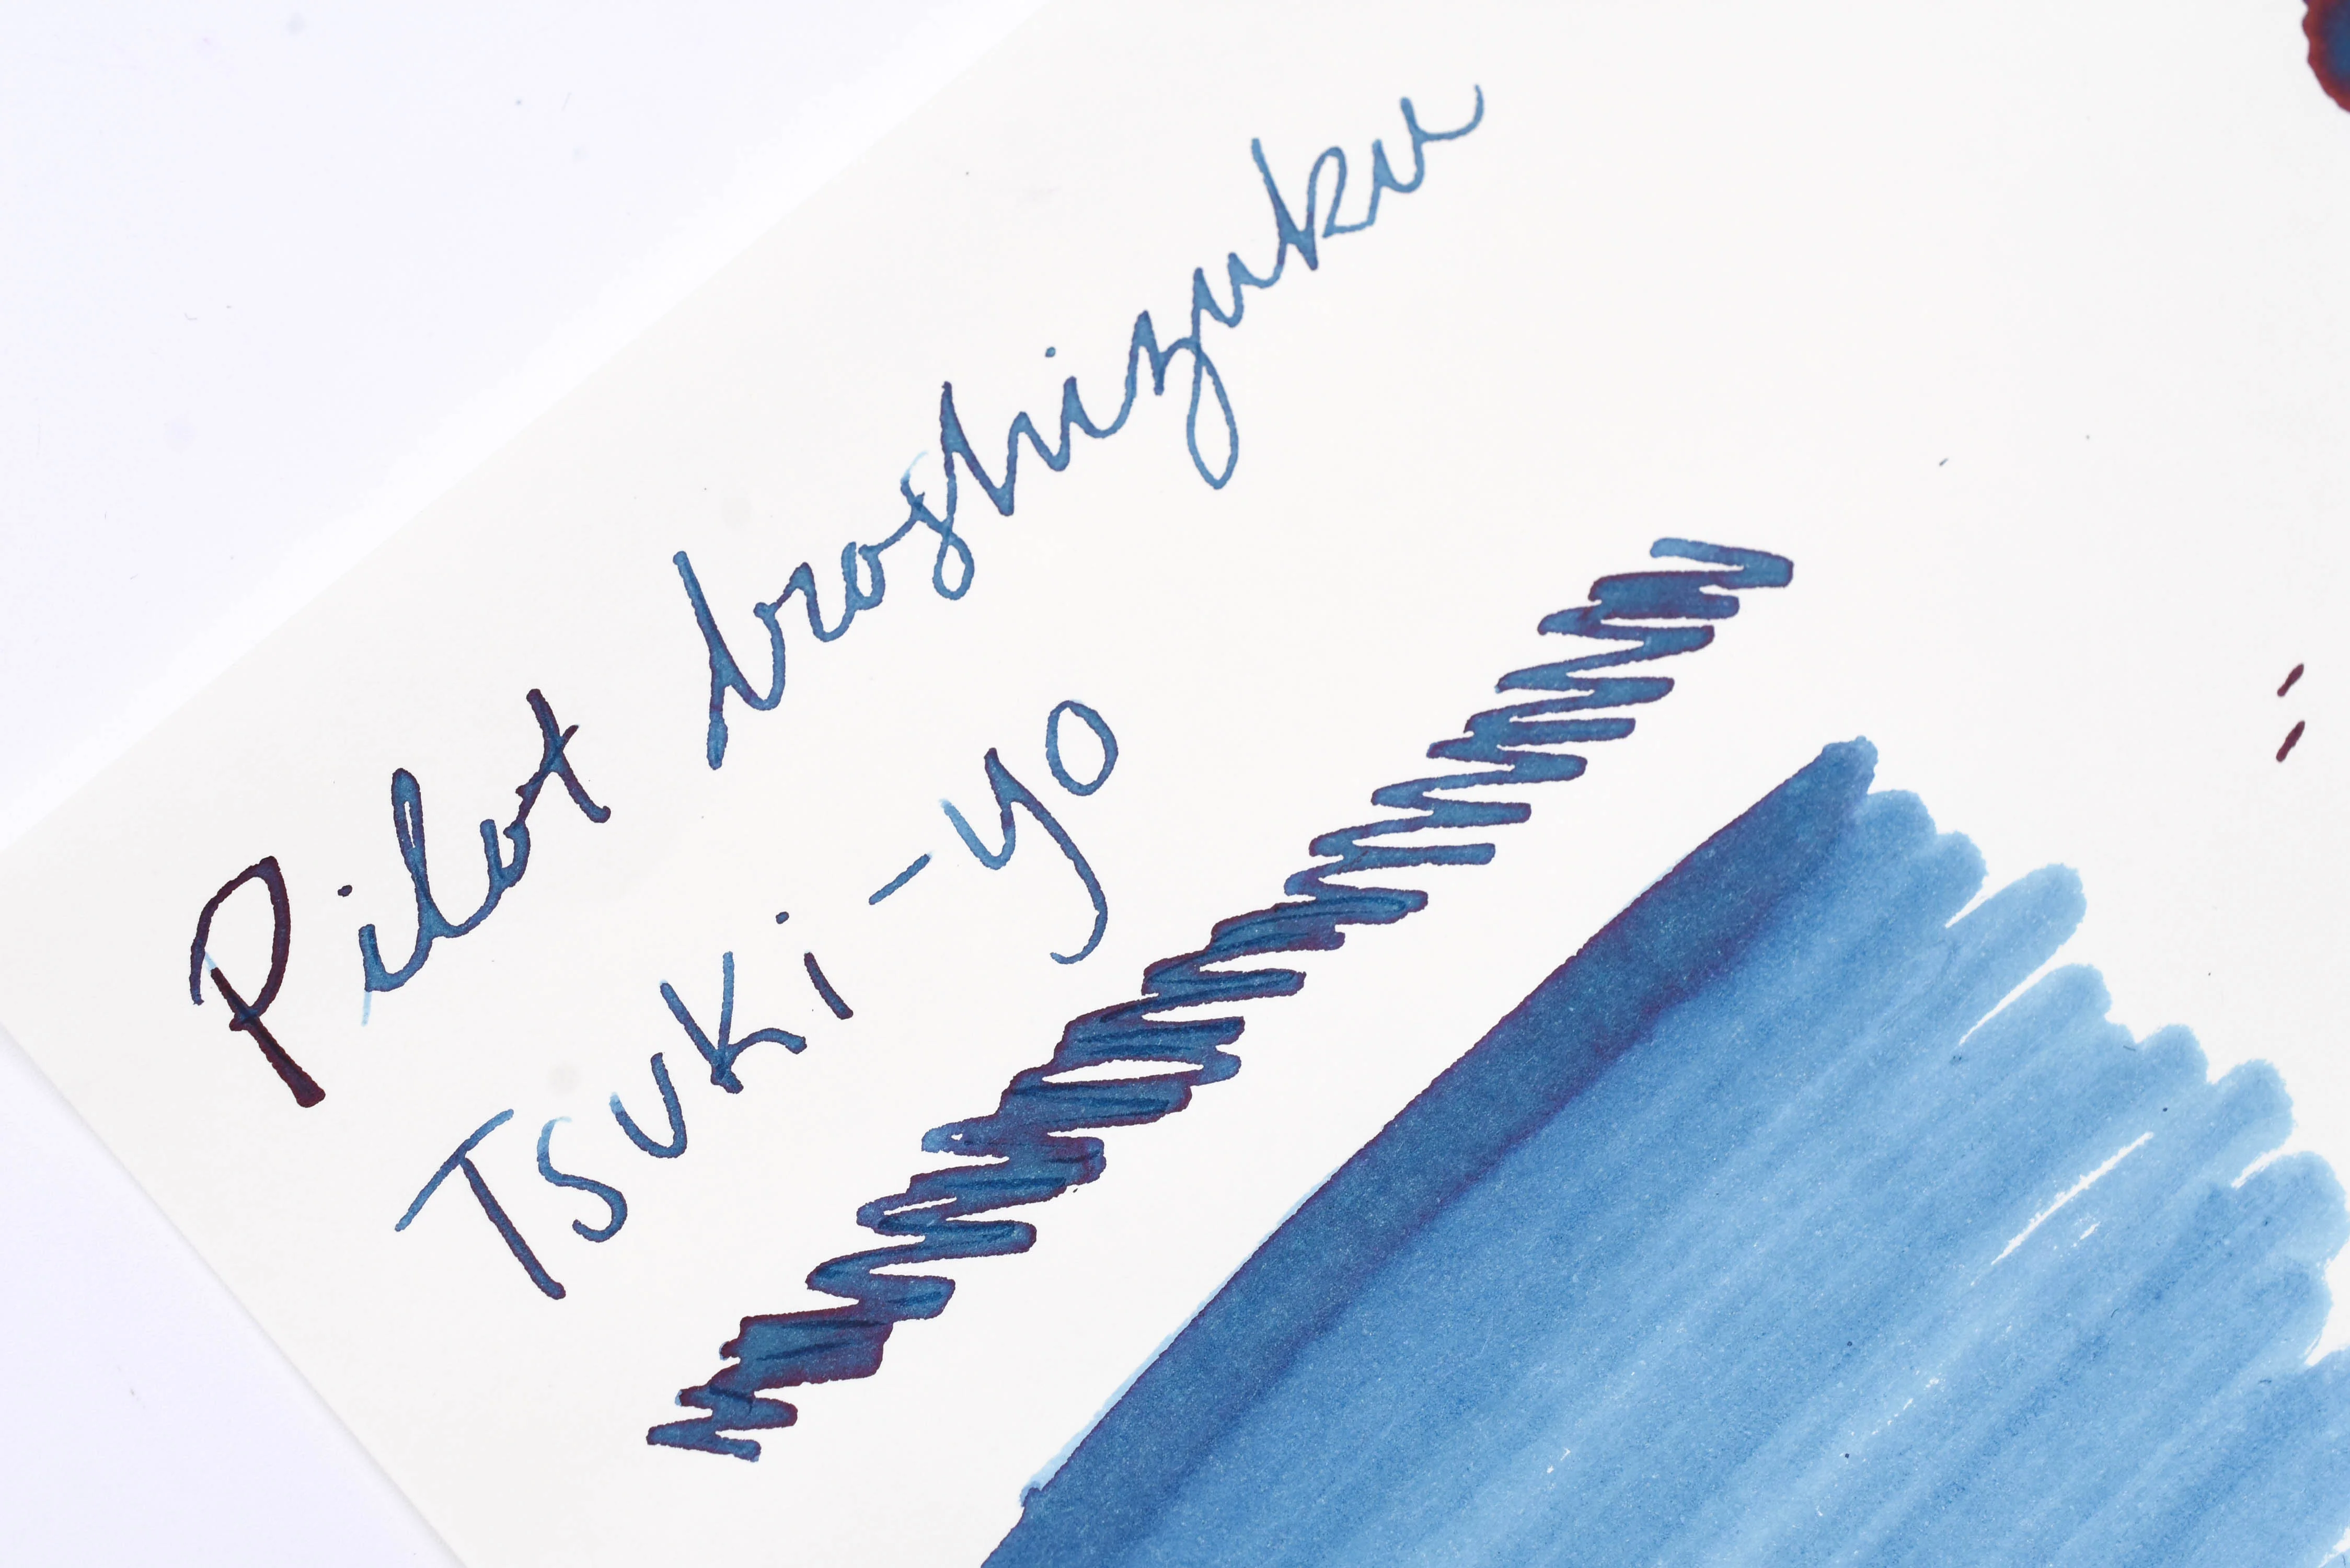 Pilot Iroshizuku
Tsuki-yo